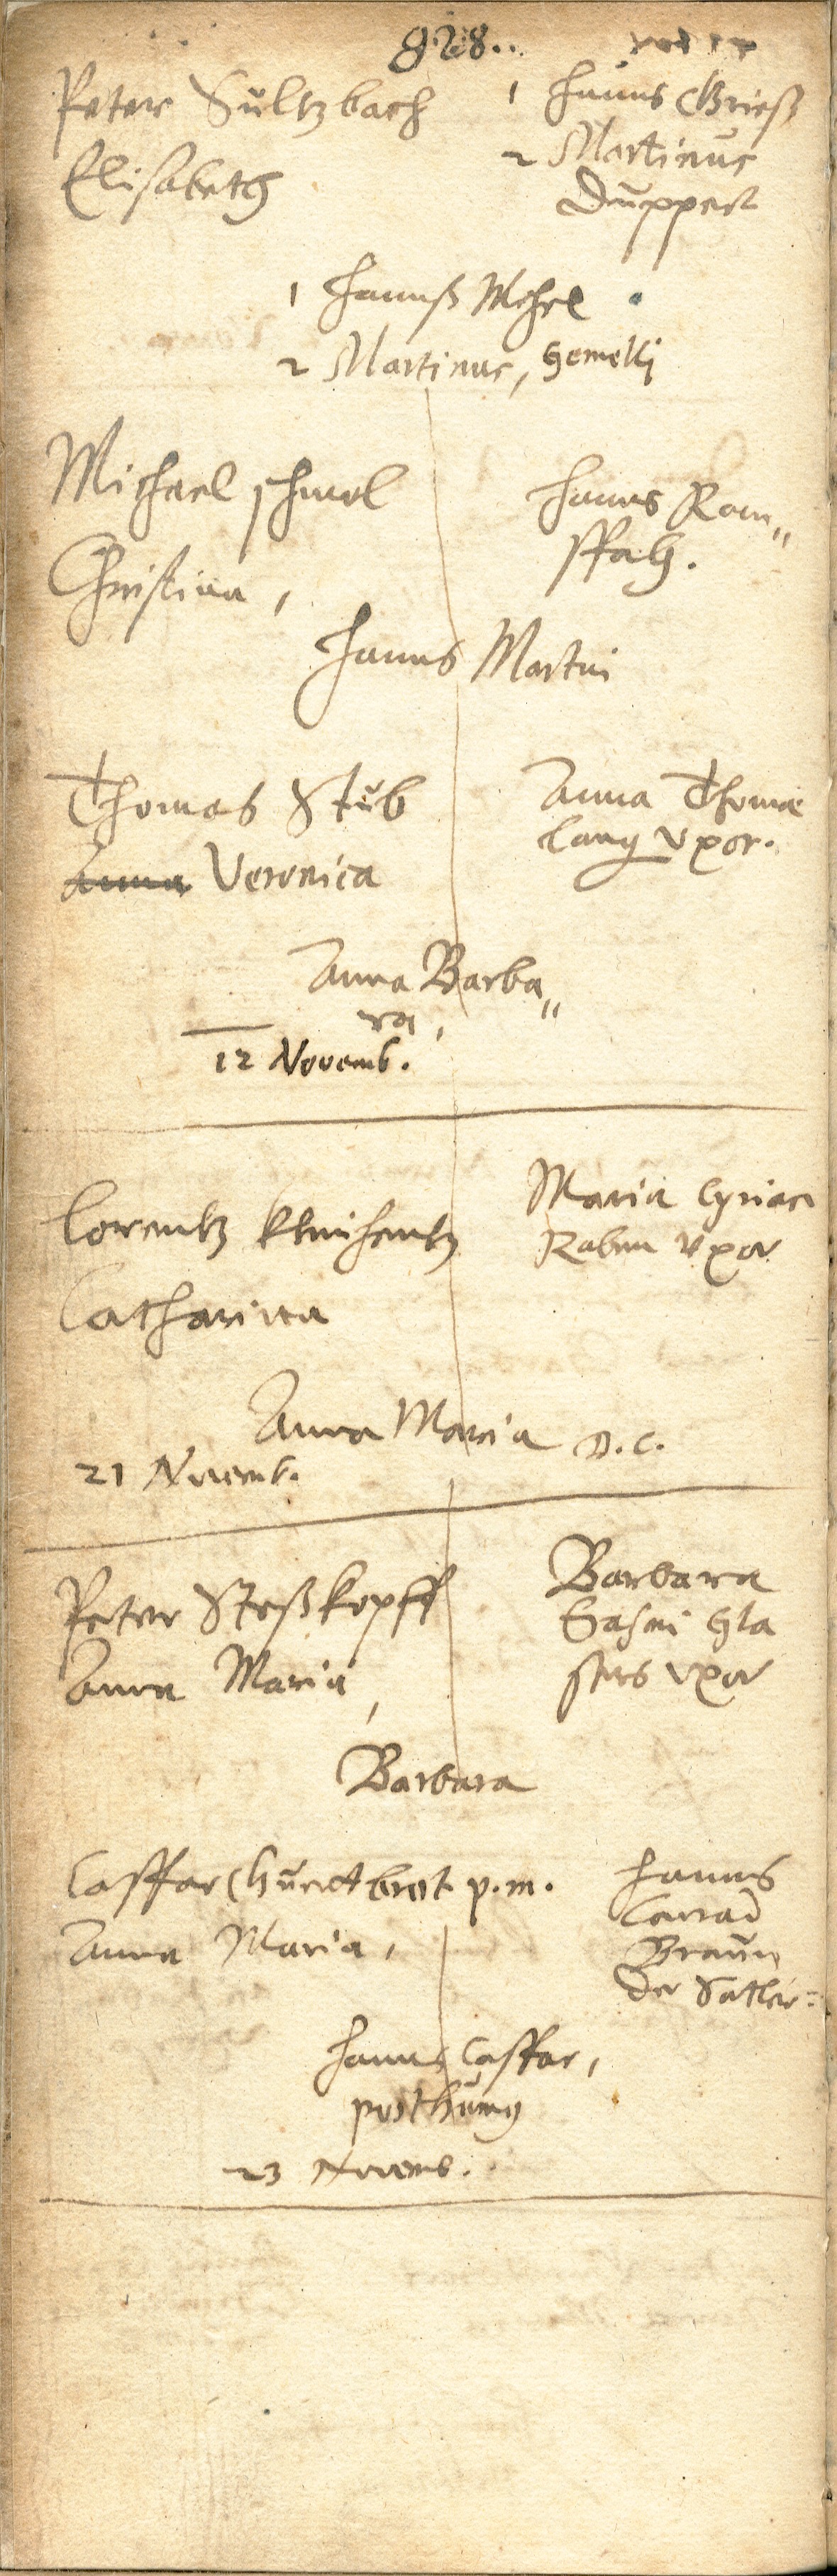 828..
Peter Sültzbach
Elisabeth
1 Hanns Grieß
2 Martinus
Düppert
1 Hannß Mehel
2 Martinus, gemelli
Michael schmol
Christina,
Hanns Rom„
Hanns Martin
Thomas Stüb
Anna Veronica
Anna Thomæ
Lang Vxor.
Anna Barba„
ra,
12 Novemb.
Lorentz
Catharina
Maria Cyriaci
Raben Vxor
Anna Maria D.C.
21 Novemb.
Peter Stoßkopff
Anna Maria,
Barbara
Vxor
Barbara
Casspar Hundtbrot p.m.
Anna Maria,
Hanns
Conrad
Braun
der Satler
Hanns Casspar,
posthumus
23 Novemb.